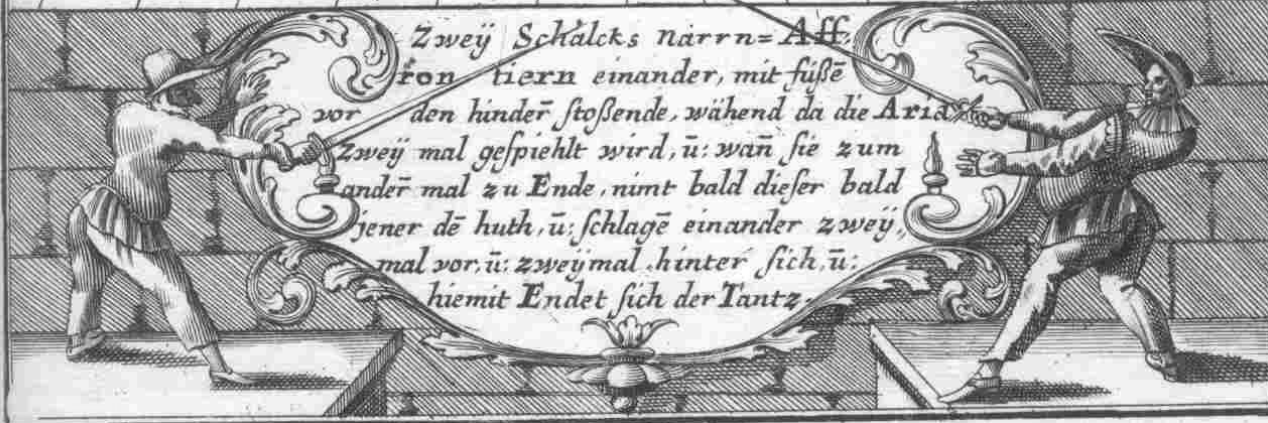 Zweÿ Schalcks narrn=Aff:
ron tiern einander, mit füßē
vor den hinder̄ stoßende, wähend da die Aria
Zweÿ mal gespiehlt wird, ū: wañ sie zum
ander̄ mal zu Ende, nimt bald dieser bald
jener dē huth, ū: schlagē einander zweÿ,
mal vor, ū: zweÿmal hinter sich, ū:
hiemit Endet sich der Tantz.